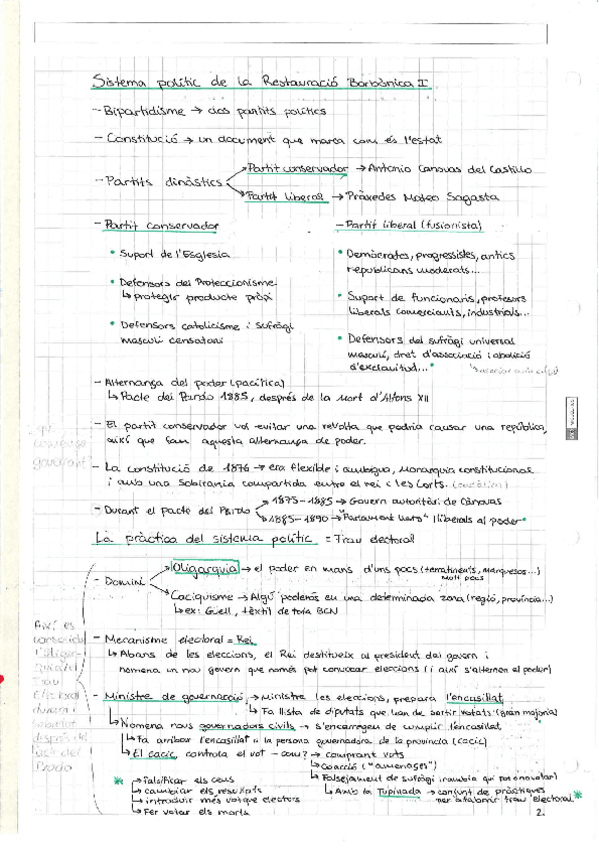 Sistema polític de la Restauració Borbònica I
- Bipartidisme → dos partits polítics
- Constitució → un document que marca com és l'estat
- Partits dinàstics
Partit conservador → Antonio Canovas del Castillo
Partit liberal → Pràxedes Mateo Sagasta
- Partit conservador
• Suport de l'Església
• Defensors del Proteccionisme
↳ protegir producte propi
• Defensors catolicisme i sufragi
masculí censatari
- Partit liberal (fusionista)
• Demòcrates, progressistes, antics
republicans moderats...
• Suport de funcionaris, profesors
liberals comerciants, industrials...
• Defensors del sufràgi universal
masculí, dret d'associció i abolició
d'exclavitud...
- Alternança del poder (pacífica)
↳ Pacte del Pardo 1885, després de la mort d'Alfons XII
- El partit conservador vol evitar una revolta que podria causar una república,
així que fan aquesta alternança de poder.
- La constitució de 1876 → era flexible i ambigua, monarquia constitucional
i amb una sobirania compartida entre el rei i les Corts.
- Durant el pacte del Pardo
1875-1885 → Govern autoritàri de Cánovas
1885-1890 → "Parlament llarg" lliberals al poder
La pràctica del sistema polític = Frau electoral
- Domini
Oligarquia → el poder en mans d'uns pocs (terratinents, marquesos...)
molt pocs
Caciquisme → Algú poderós en una determinada zona (regió, província...)
↳ ex: Güell, tèxtil de tota BCN
- Mecanisme electoral = Rei
↳ Abans de les eleccions, el Rei destitueix al president del govern i
nomena un nou govern que només pot convocar eleccions (i així s'alternen el poder)
- Ministre de governació → Ministre les eleccions, prepara l'encasillat
↳ Fa llista de diputats que han de sortir votats (gran majoria)
↳ Nomena nous governadors civils → s'encarreguen de cumplir l'encasillat
↳ Fa arribar l'encasillat a la persona governadora de la província (cacic)
↳ El cacic, controla el vot - com? → comprant vots
↳ Coacció ("amenaces")
↳ Falsejament de sufragi
↳ Amb la Tupinada → conjunt de pràctiques
per establir frau electoral *
* → falsificar els cens
→ cambiar els resultats
→ introduir més vot que electors
→ Fer votar els morts
2.